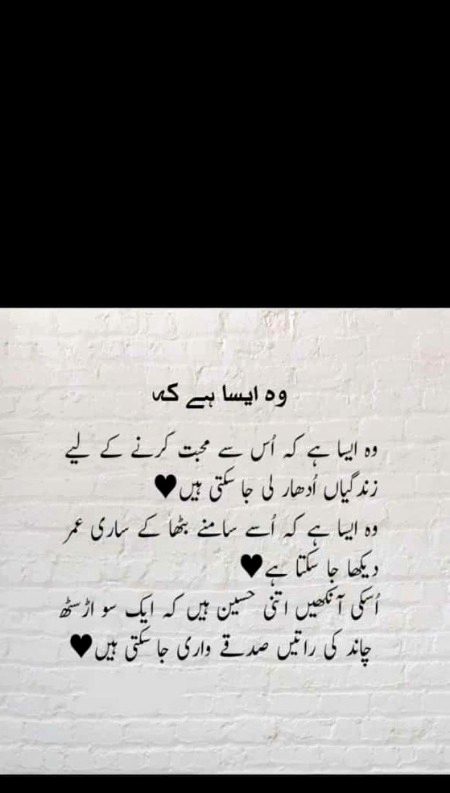 وہ ایسا ہے کہ
وہ ایسا ہے کہ اُس سے محبت کرنے کے لیے
زندگیاں اُدھار لی جا سکتی ہیں♥
وہ ایسا ہے کہ اُسے سامنے بٹھا کے ساری عمر
دیکھا جا سکتا ہے♥
اُسکی آنکھیں اتنی حسین ہیں کہ ایک سو اڑسٹھ
چاند کی راتیں صدقے واری جا سکتی ہیں♥